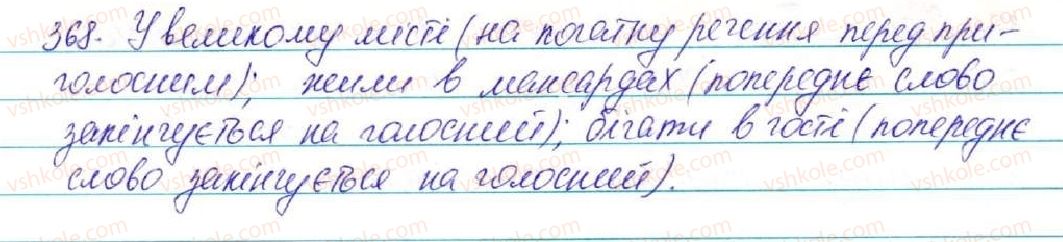 368. У великому місті (на початку речення перед при-
голосним); жили в мансардах (попереднє слово
закінчується на голосний); бігати в гості (попереднє
слово закінчується на голосний).